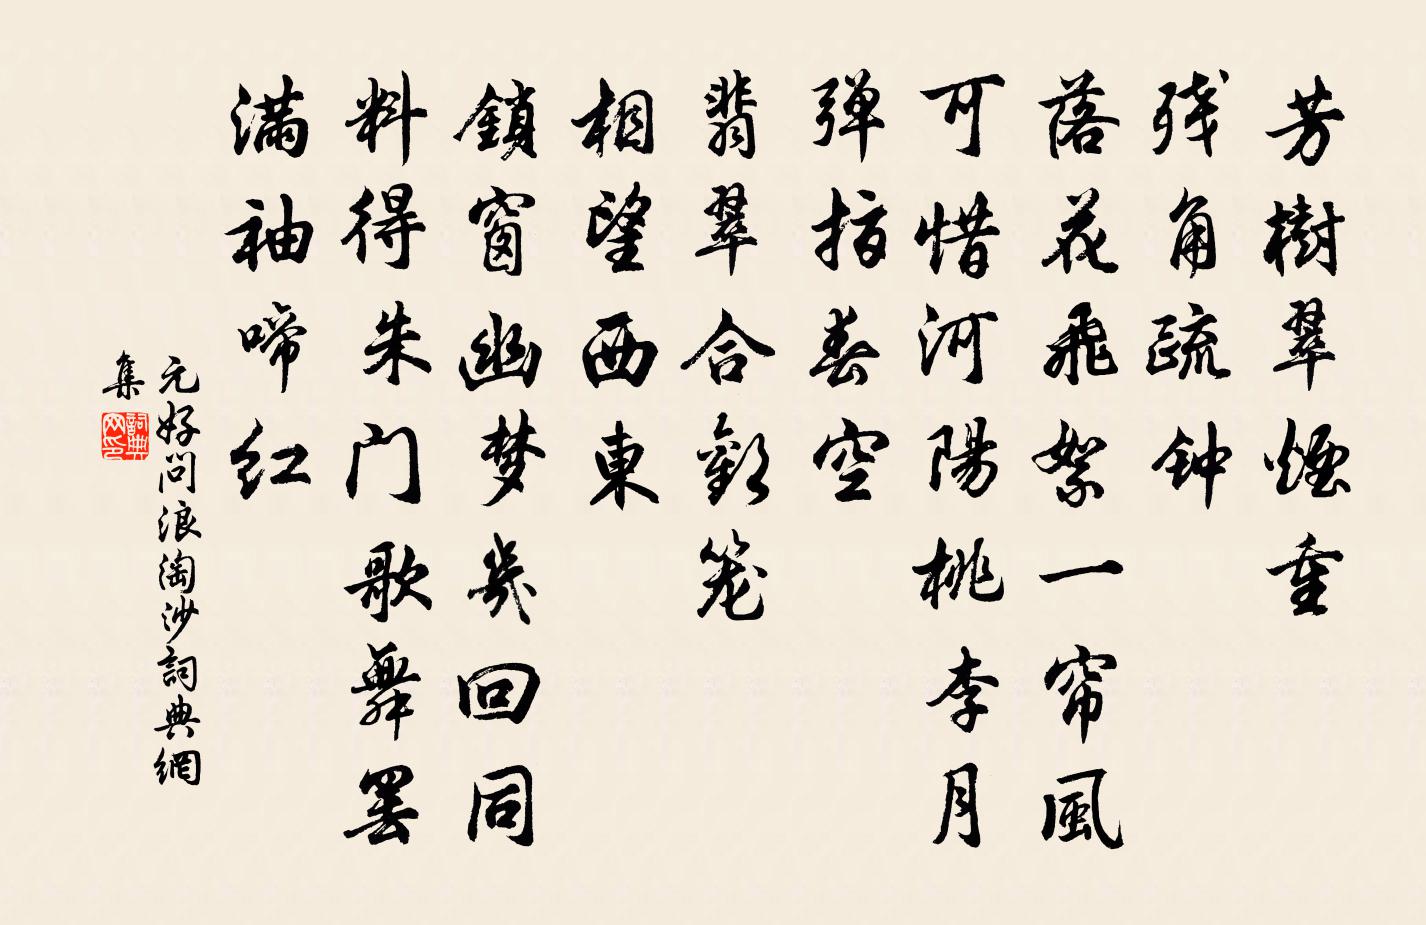 芳樹翠煙重
残角疏钟
落花飛絮一帘風
可惜河陽桃李月
弹指春空
翡翠合歡笼
相望西東
鎖窗幽梦幾回同
料得朱门歌舞罢
满袖啼红
元好问浪淘沙詞典網
集
詞典网印